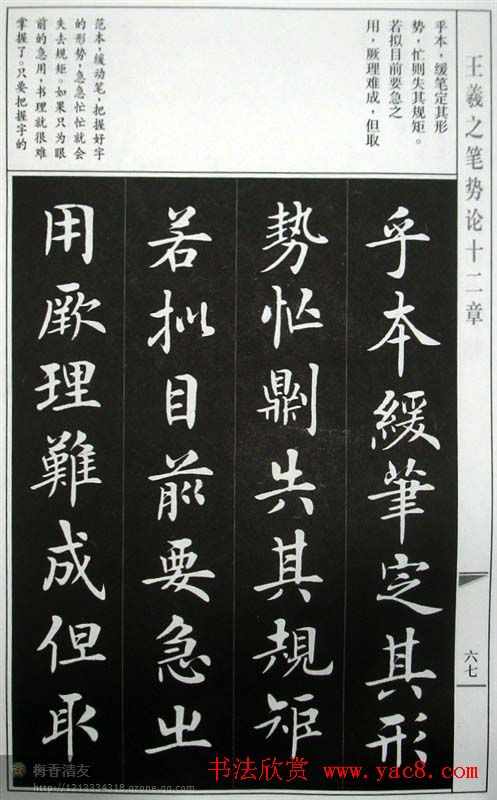 王羲之笔势论十二章
六七
乎本，缓笔定其形
势，忙则失其规矩。
若拟目前要急之
用，厥理难成，但取
范本，缓动笔，把握好字
的形势，急急忙忙就会
失去规矩。如果只为眼
前的急用，书理就很难
掌握了。只要把握字的
乎本緩筆定其形
勢忙鼎刂失其規矩
若拟目前要急出
用厥理難成但取
梅香清友
http://1213334318.qzone.qq.com
书法欣赏 www.yac8.com